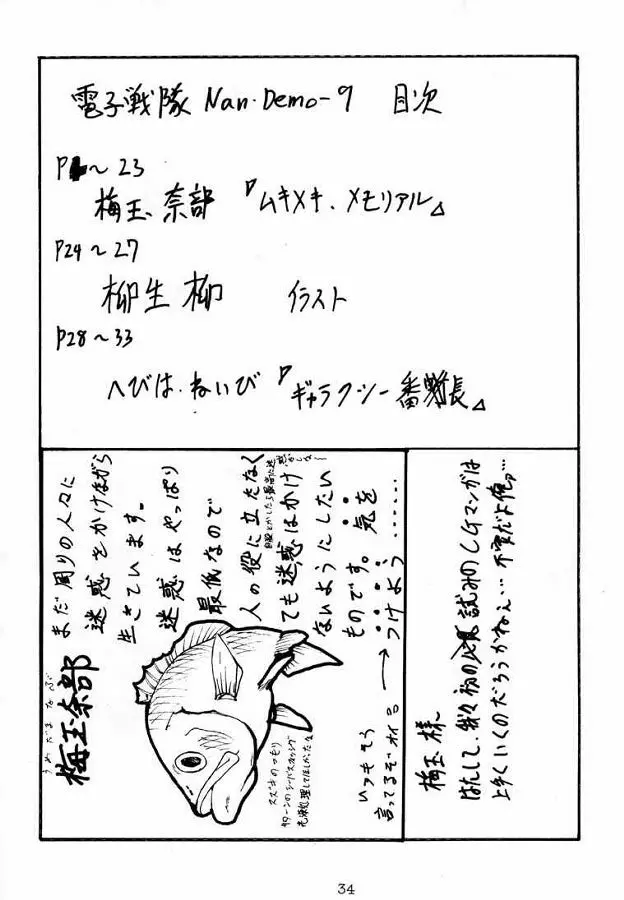 電子戦隊 Nan・Demo-9 目次
P ～23
梅玉奈部『ムキメキ・メモリアル』
P24～27
柳生柳 イラスト
P28～33
へびは・ねいび『ギャラクシー番野長』
まだ周りの人々に
迷惑をかけながら
生きています。
迷惑はやっぱり
最低なので
人の役に立たなく
ても迷惑はかけ
ないようにしたい
ものです。気を
つけよう……
→いつもそう
言ってるぞオイ
梅玉奈部
うめだまなぶ
スズキのつもり
梅玉様
はたして、我々初の 試みのCGマンガは
上手くいくのだろうかねぇ…不安だよ俺ァ…
34